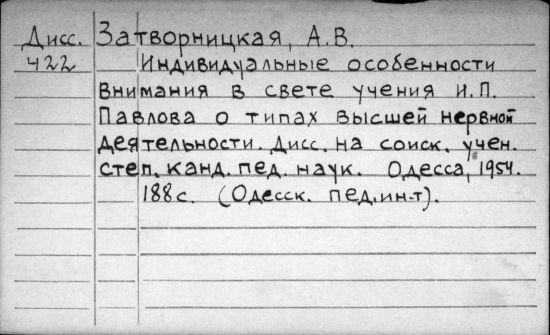 Дисс. Затворницкая, А.В.
422 Индивидуальные особенности
внимания в свете учения И.П.
Павлова о типах высшей нервной
деятельности. Дисс. на соиск. учен.
степ. канд. пед. наук. Одесса, 1954.
188 с. (Одесск. пед. ин-т).